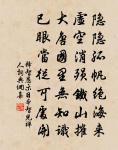 隱隱孤帆絕海來
虛空消殞鐵山摧
大唐國里無知識
已眼當從何處開
釋智愚示日本智光禪
人